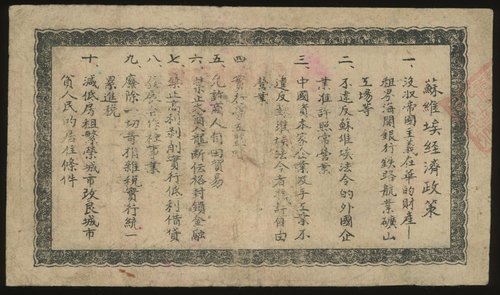 蘇維埃經濟政策
一、沒收帝國主義在華的財產—
租界海関銀行鉄路航業礦山
工場等
二、不違反蘇維埃法令的外國企
業准許照常營業
三、中國資本家企業及手工業不
違反蘇維埃法令者準許自由
營業
四、實行
五、允許商人自由貿易
六、禁止商人壟断価格封鎖金融
七、禁止高利剥削實行低利借貸
八、發展合作社事業
九、廢除一切苛捐雜税實行統一
累進税
十、減低房租繁榮城市改良城市
貧人民的居住條件